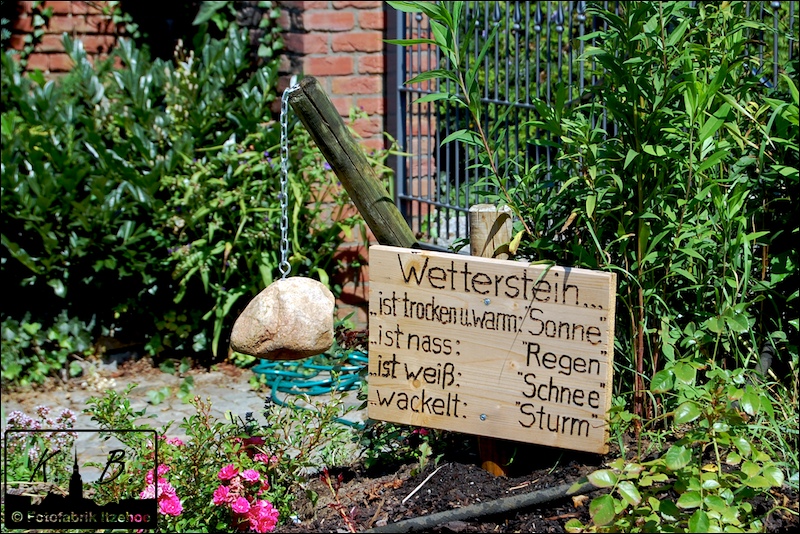 Wetterstein...
..ist trocken u. warm: "Sonne"
..ist nass: "Regen"
..ist weiß: "Schnee"
..wackelt: "Sturm"
K B
© Fotofabrik Itzehoe